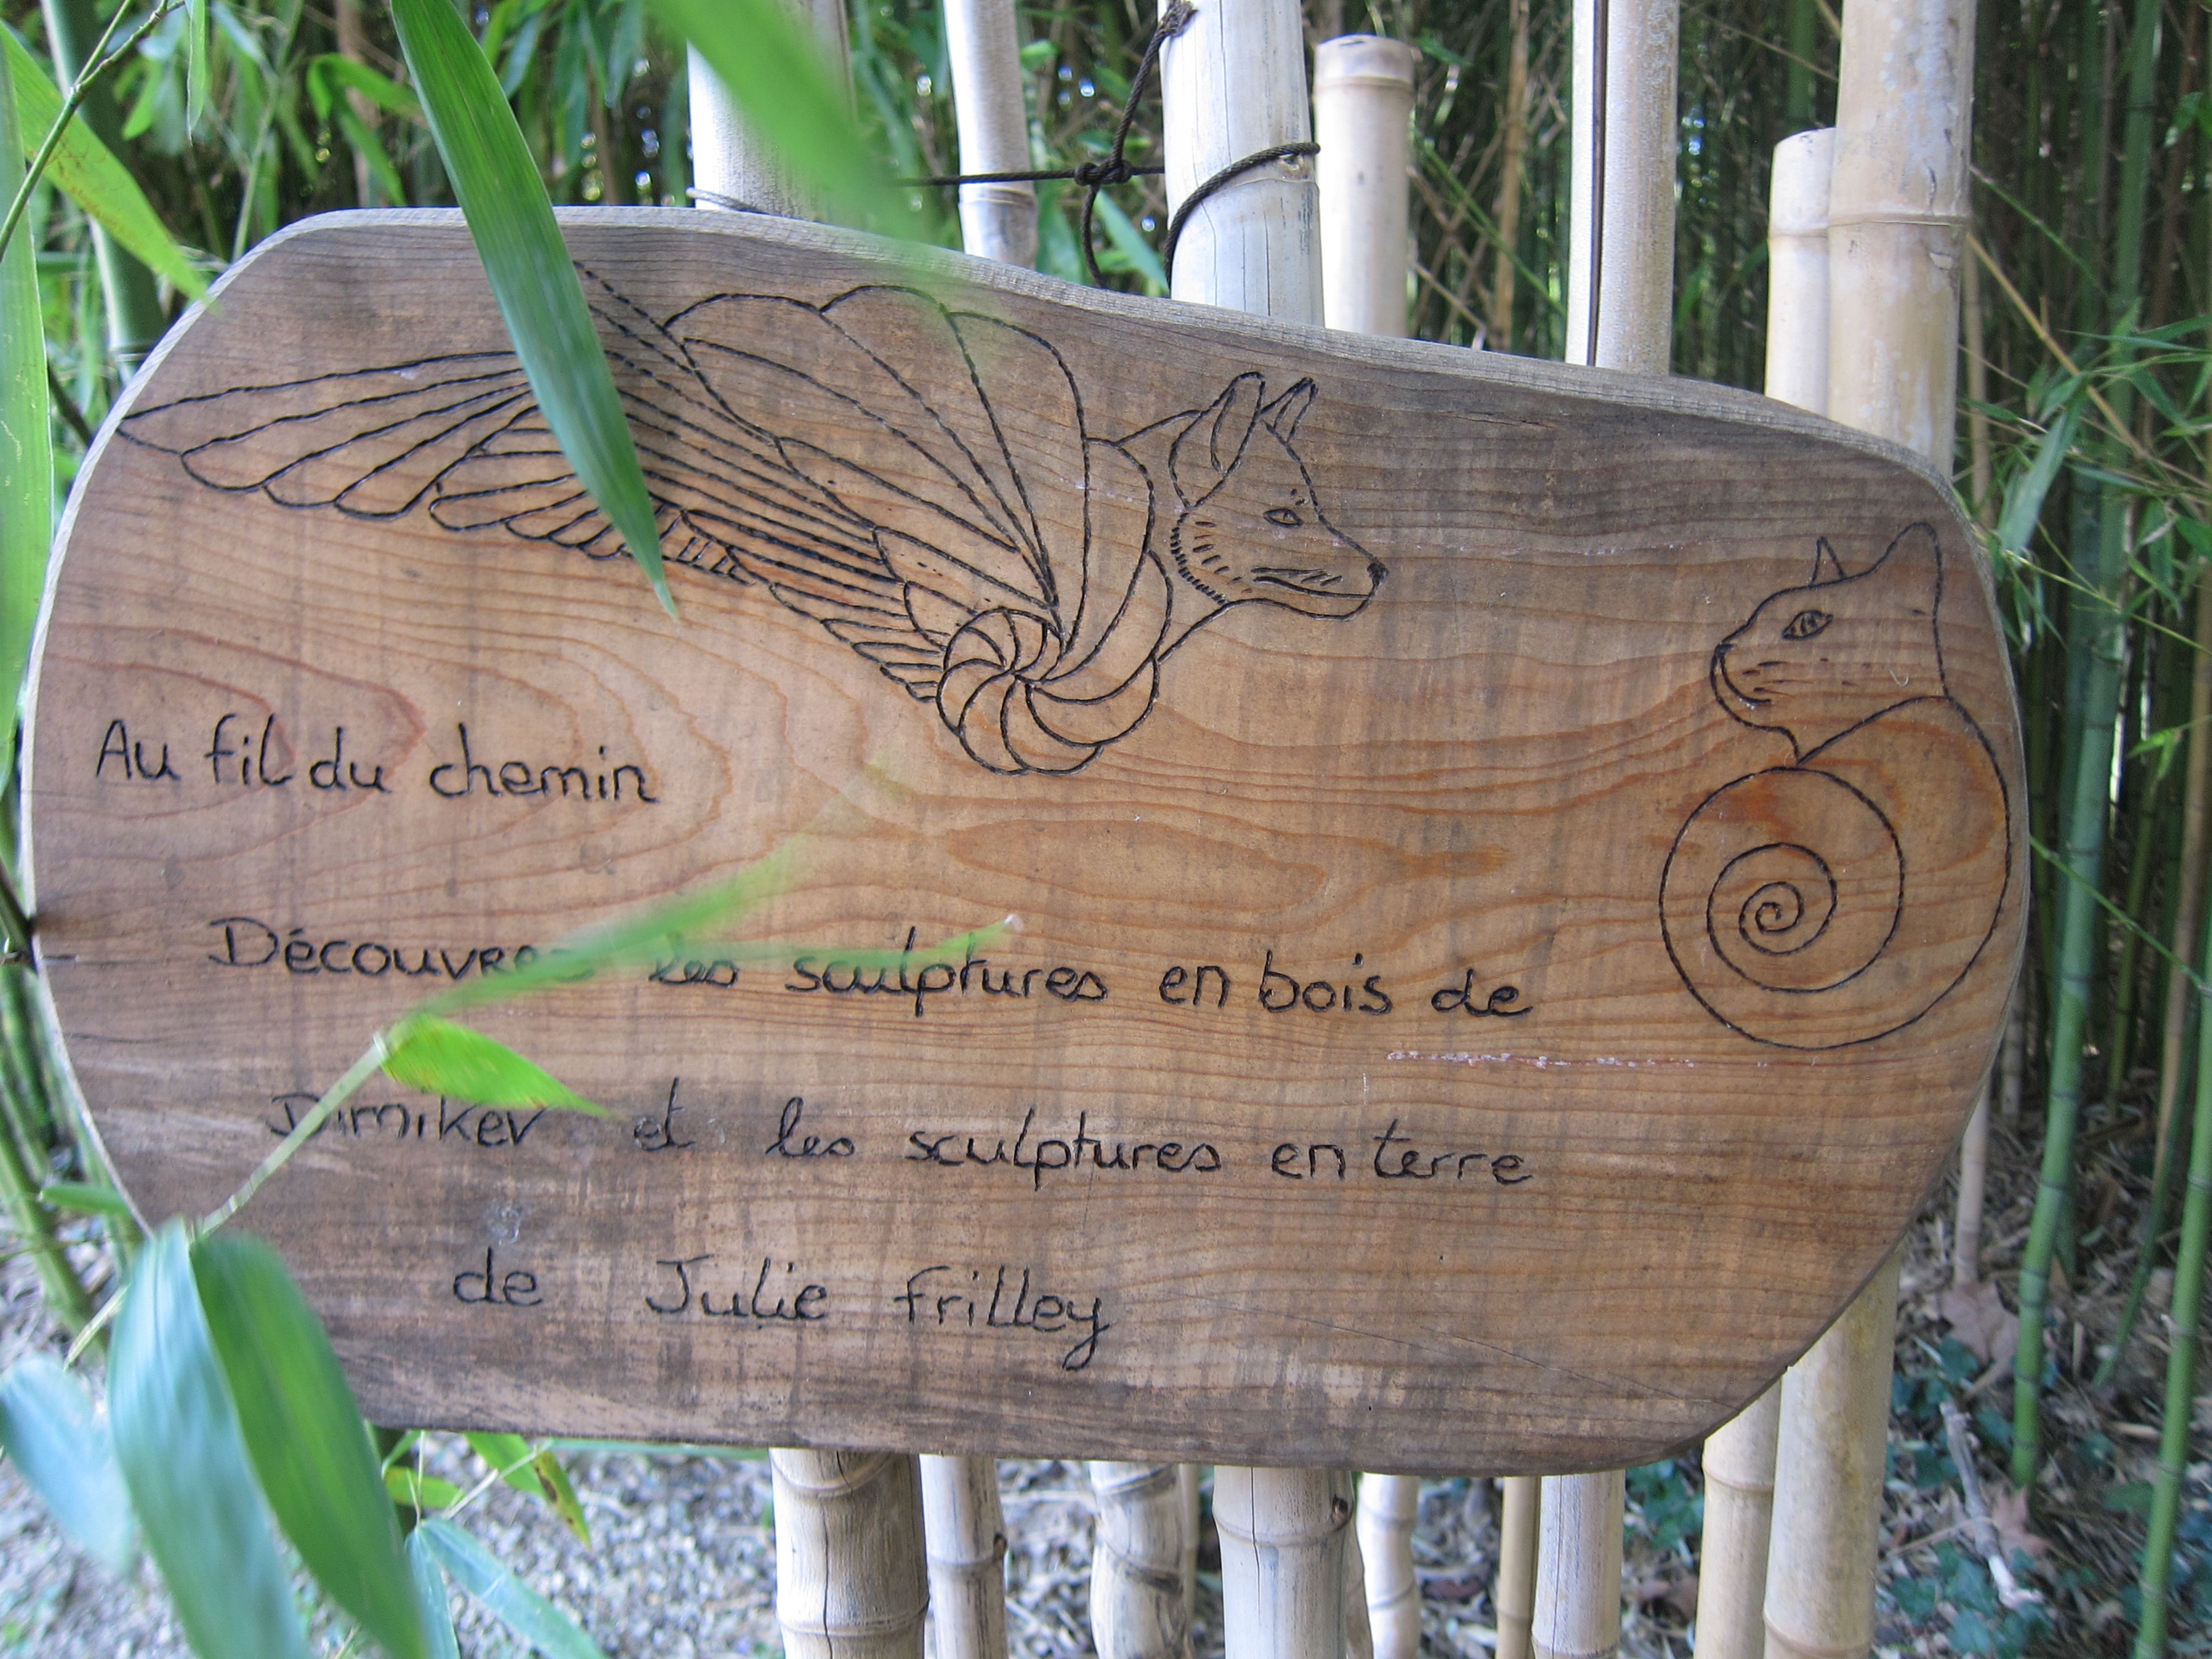 Au fil du chemin
Découvrez les sculptures en bois de
Dimiker et les sculptures en terre
de Julie frilley